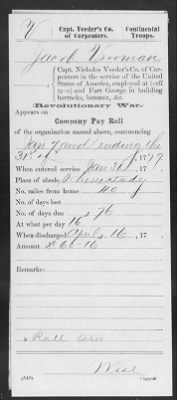 V Capt. Veeder's Co. of Carpenters. Continental Troops.
Jacob Vrooman
Capt. Nicholas Veeder's Co. of Car-
penters in the service of the United
States of America, employed at (off
and on) and Fort George in building
barracks, bateaux, &c.
Revolutionary War.
Appears on
Company Pay Roll
of the organization named above, commencing
Jan 7 and ending the
31 1777
When entered service Jan 31, 17
Place of abode Schenectady
No. miles from home 40
No. of days lost
No. of days due 76
At what per day 16
When discharged April 16, 17
Amount 60-16
Remarks:
Roll
Wise
Copyist.